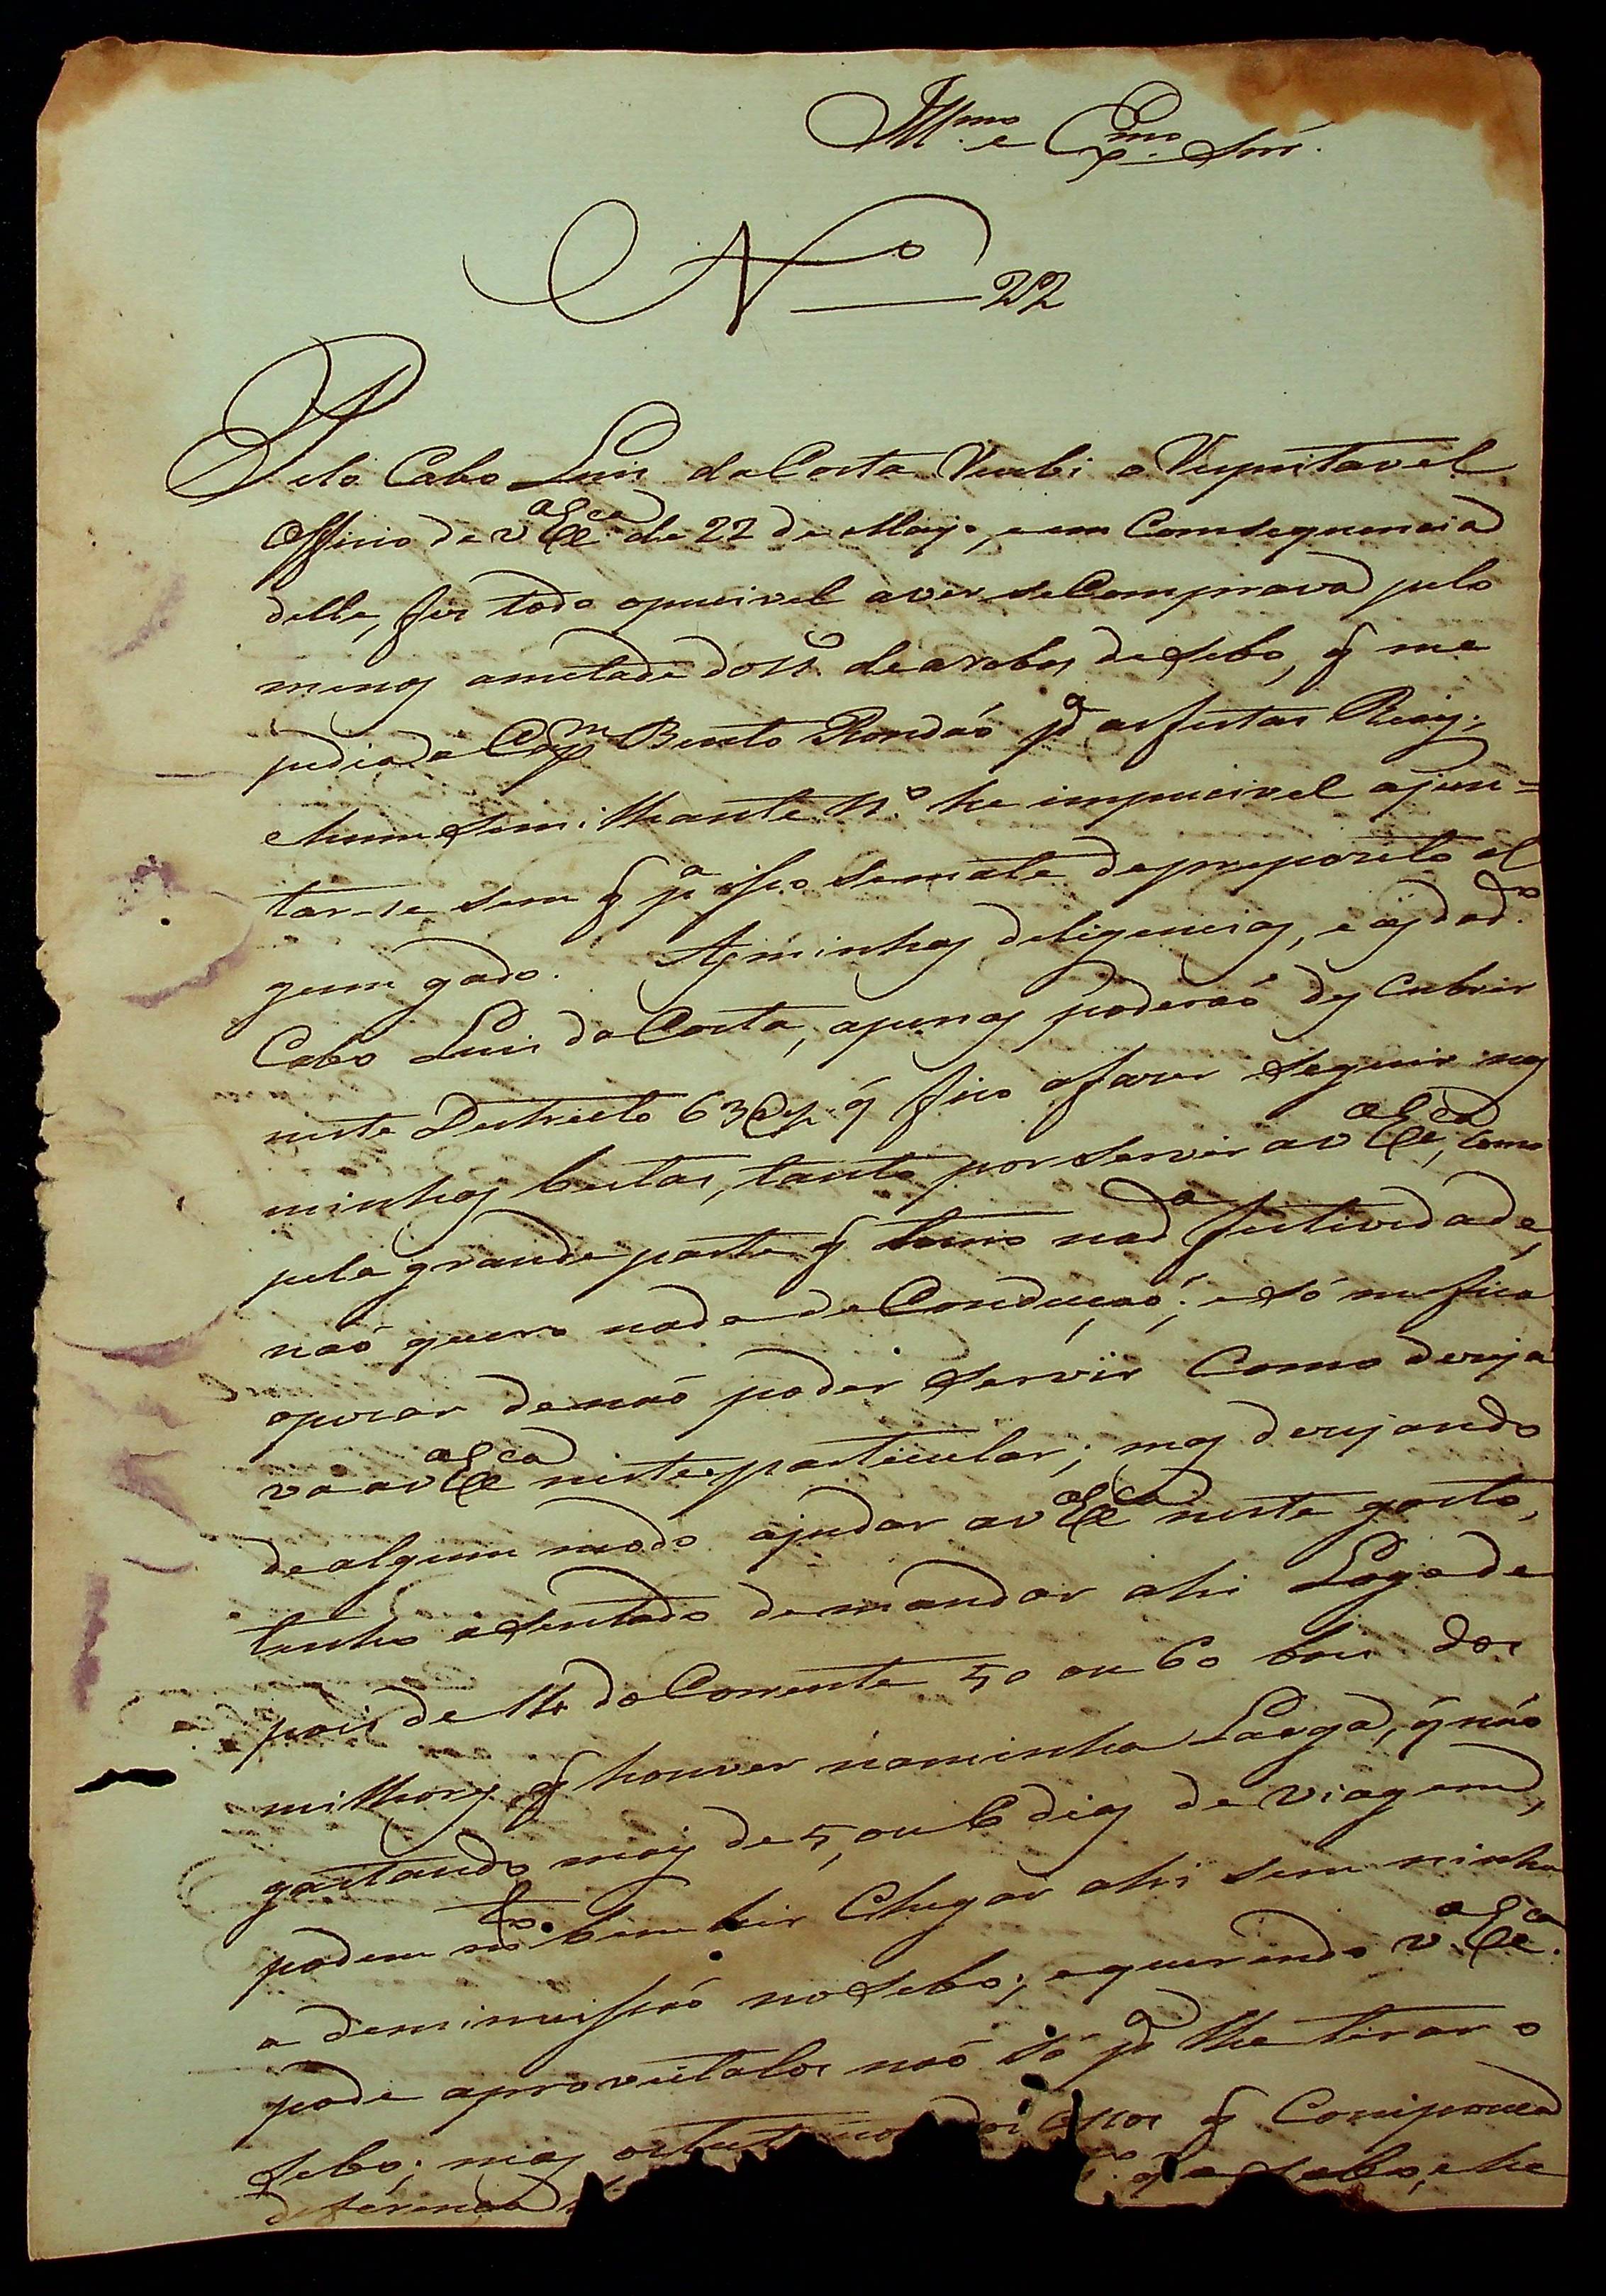 Illmo. e Exmo. Snr.
No 22
Pelo Cabo Luis da Costa Recebi o Respeitavel
Officio de V.a Ex.ca de 22 de Mayo, e em Comsequencia
delle, fis todo opucivel aver se Comprava pelo
menos ametade do N.o de arobas de sebo, q me
pedia do Capm Bento Rondaó pa as festas Reays,
e hum similhante N.o he impucivel ajun=
tar-se sem q pa isso semate de preposeito al
gum gado. As minhas deligencias, e as do d.o
Cabo Luis da Costa, apenas poderaó des Cubrir
neste Destricto 63 @ q fico afazer seguir nas
minhas bestas, tanto por servir a V.a Ex.ca, como
pela grande parte q tomo na d.a festividade,
naó quero nada de Conduçaó; e só me fica
opezar de naó poder servir Como dezeja
va a V.a Ex.ca neste particular; mas dezejando
de algum modo ajudar a V.a Ex.ca neste gosto,
tenho asentado de mandar ahi Logo de
pois de 14 do Corrente 50 ou 60 bois dos
milhores q houver na minha Larga, q naó
gastando mais de 5, ou 6 dias de viagem,
podem m.to bem hir Chegar ahi sem ninhu
a deminuissaó no sebo; e querendo V.a Ex.ca
pode aproveitalos naó só pa lhe tirar o
sebo; mas q Componca
deferença q sebo, e he